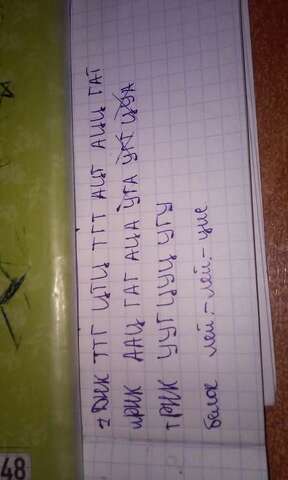 1 ДНК ТТГ ЦТЦ ТГТ АЦТ АЦЦ ГАТ
иРНК ААЦ ГАГ АЦА УГА ЦУА
тРНК УУГ ЦУЦ УГУ
белок лей.-лей.-цис
48